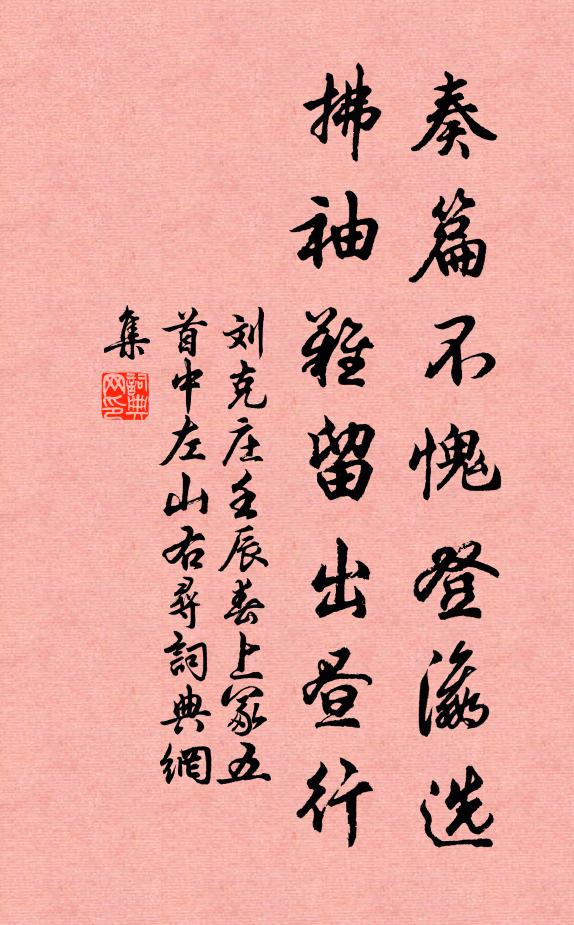 奏篇不愧登瀛选
拂袖難留出昼行
刘克庄壬辰春上冢五
首中左山右尋詞典網
集
詞典
网印